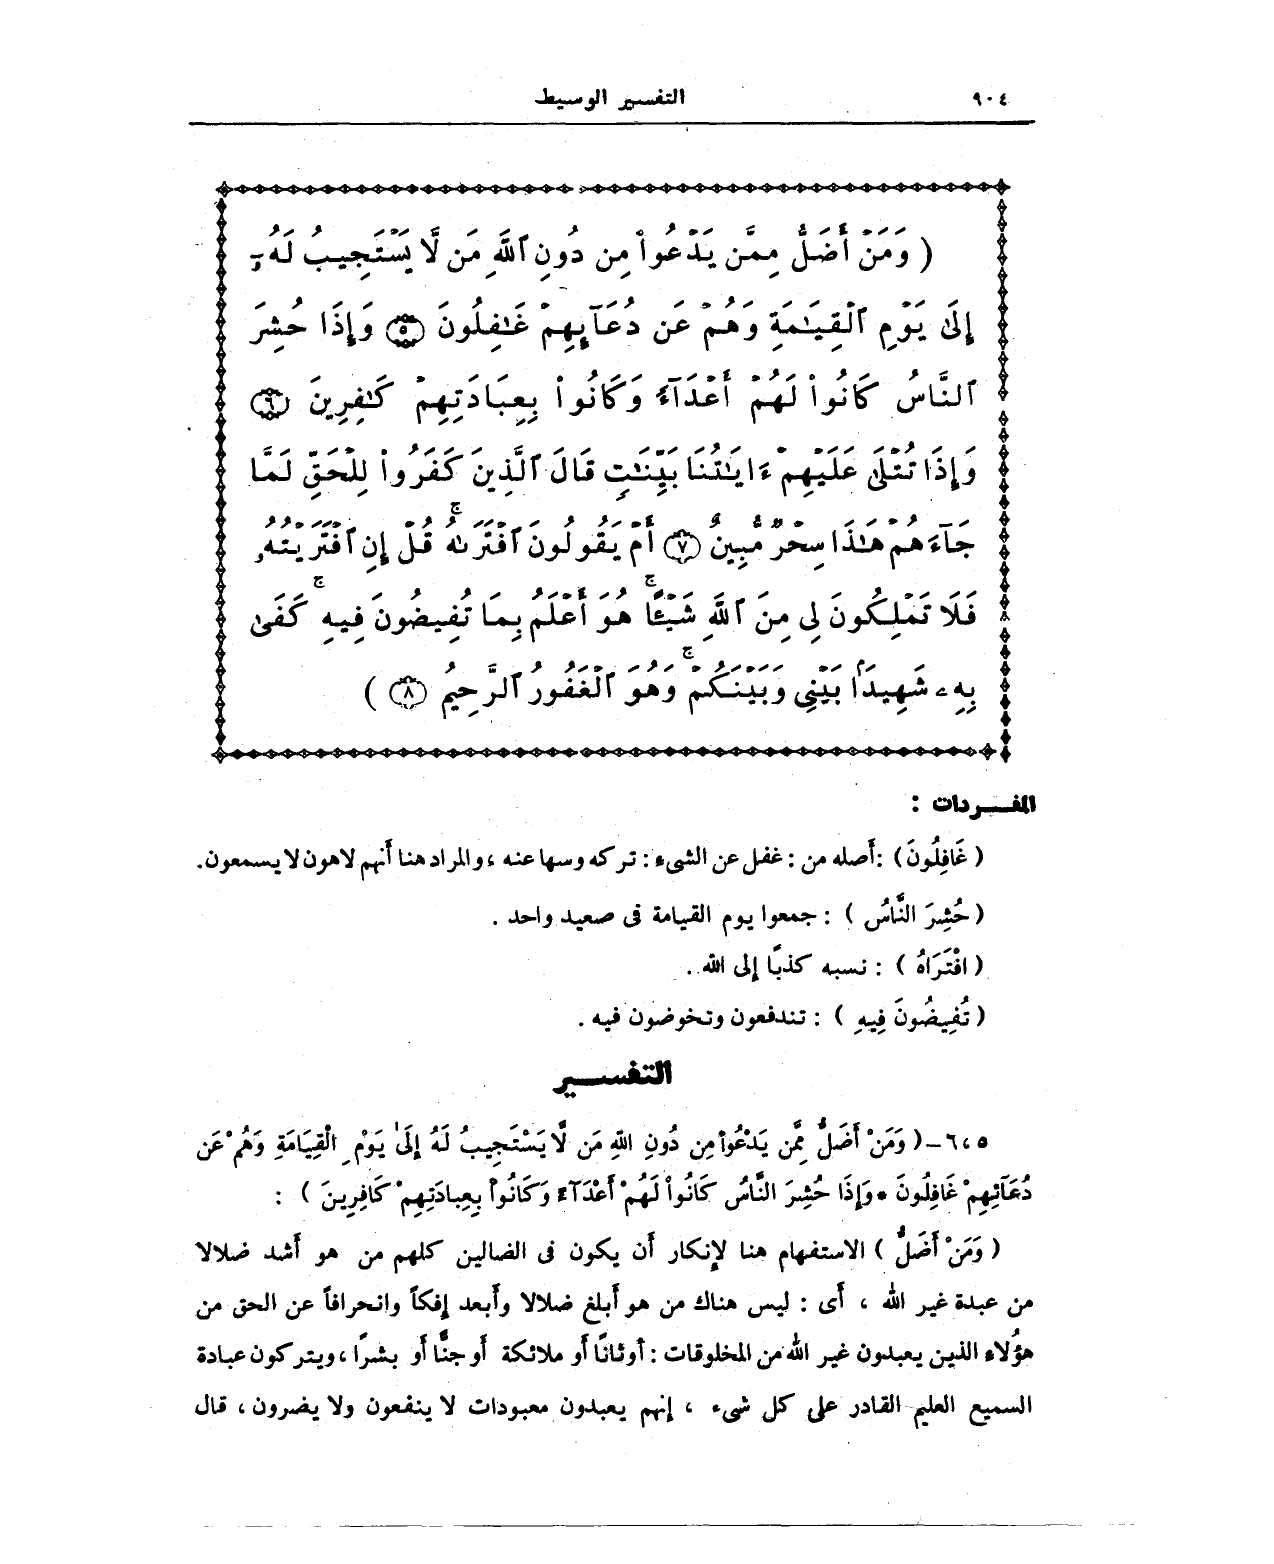 ٩٠٤ التفسير الوسيط
( وَمَنْ أَضَلُّ مِمَّن يَدْعُوا۟ مِن دُونِ ٱللَّهِ مَن لَّا يَسْتَجِيبُ لَهُۥٓ
إِلَىٰ يَوْمِ ٱلْقِيَـٰمَةِ وَهُمْ عَن دُعَآئِهِمْ غَـٰفِلُونَ ۝٥ وَإِذَا حُشِرَ
ٱلنَّاسُ كَانُوا۟ لَهُمْ أَعْدَآءً وَكَانُوا۟ بِعِبَادَتِهِمْ كَـٰفِرِينَ ۝٦
وَإِذَا تُتْلَىٰ عَلَيْهِمْ ءَايَـٰتُنَا بَيِّنَـٰتٍ قَالَ ٱلَّذِينَ كَفَرُوا۟ لِلْحَقِّ لَمَّا
جَآءَهُمْ هَـٰذَا سِحْرٌ مُّبِينٌ ۝٧ أَمْ يَقُولُونَ ٱفْتَرَىٰهُ ۖ قُلْ إِنِ ٱفْتَرَيْتُهُۥ
فَلَا تَمْلِكُونَ لِى مِنَ ٱللَّهِ شَيْـًٔا ۖ هُوَ أَعْلَمُ بِمَا تُفِيضُونَ فِيهِ ۖ كَفَىٰ
بِهِۦ شَهِيدًۢا بَيْنِى وَبَيْنَكُمْ ۖ وَهُوَ ٱلْغَفُورُ ٱلرَّحِيمُ ۝٨ )
المفـــردات :
( غَافِلُونَ ) : أصله من : غفل عن الشىء : تركه وسها عنه ، والمراد هنا أنهم لاهون لا يسمعون .
( حُشِرَ النَّاسُ ) : جمعوا يوم القيامة فى صعيد واحد .
( افْتَرَاهُ ) : نسبه كذبًا إلى الله .
( تُفِيضُونَ فِيهِ ) : تندفعون وتخوضون فيه .
التفســـير
٥ ، ٦ - ( وَمَنْ أَضَلُّ مِمَّن يَدْعُوا۟ مِن دُونِ اللهِ مَن لَّا يَسْتَجِيبُ لَهُ إِلَىٰ يَوْمِ الْقِيَامَةِ وَهُمْ عَن
دُعَائِهِمْ غَافِلُونَ * وَإِذَا حُشِرَ النَّاسُ كَانُوا۟ لَهُمْ أَعْدَآءً وَكَانُوا۟ بِعِبادَتِهِمْ كَافِرِينَ ) :
( وَمَنْ أَضَلُّ ) الاستفهام هنا لإنكار أن يكون فى الضالين كلهم من هو أشد ضلالا
من عبدة غير الله ، أى : ليس هناك من هو أبلغ ضلالا وأبعد إفكاً وانحرافاً عن الحق من
هؤلاء الذين يعبدون غير الله من المخلوقات : أوثانًا أو ملائكة أو جنًّا أو بشرًا ، ويتركون عبادة
السميع العليم القادر على كل شىء ، إنهم يعبدون معبودات لا ينفعون ولا يضرون ، قال